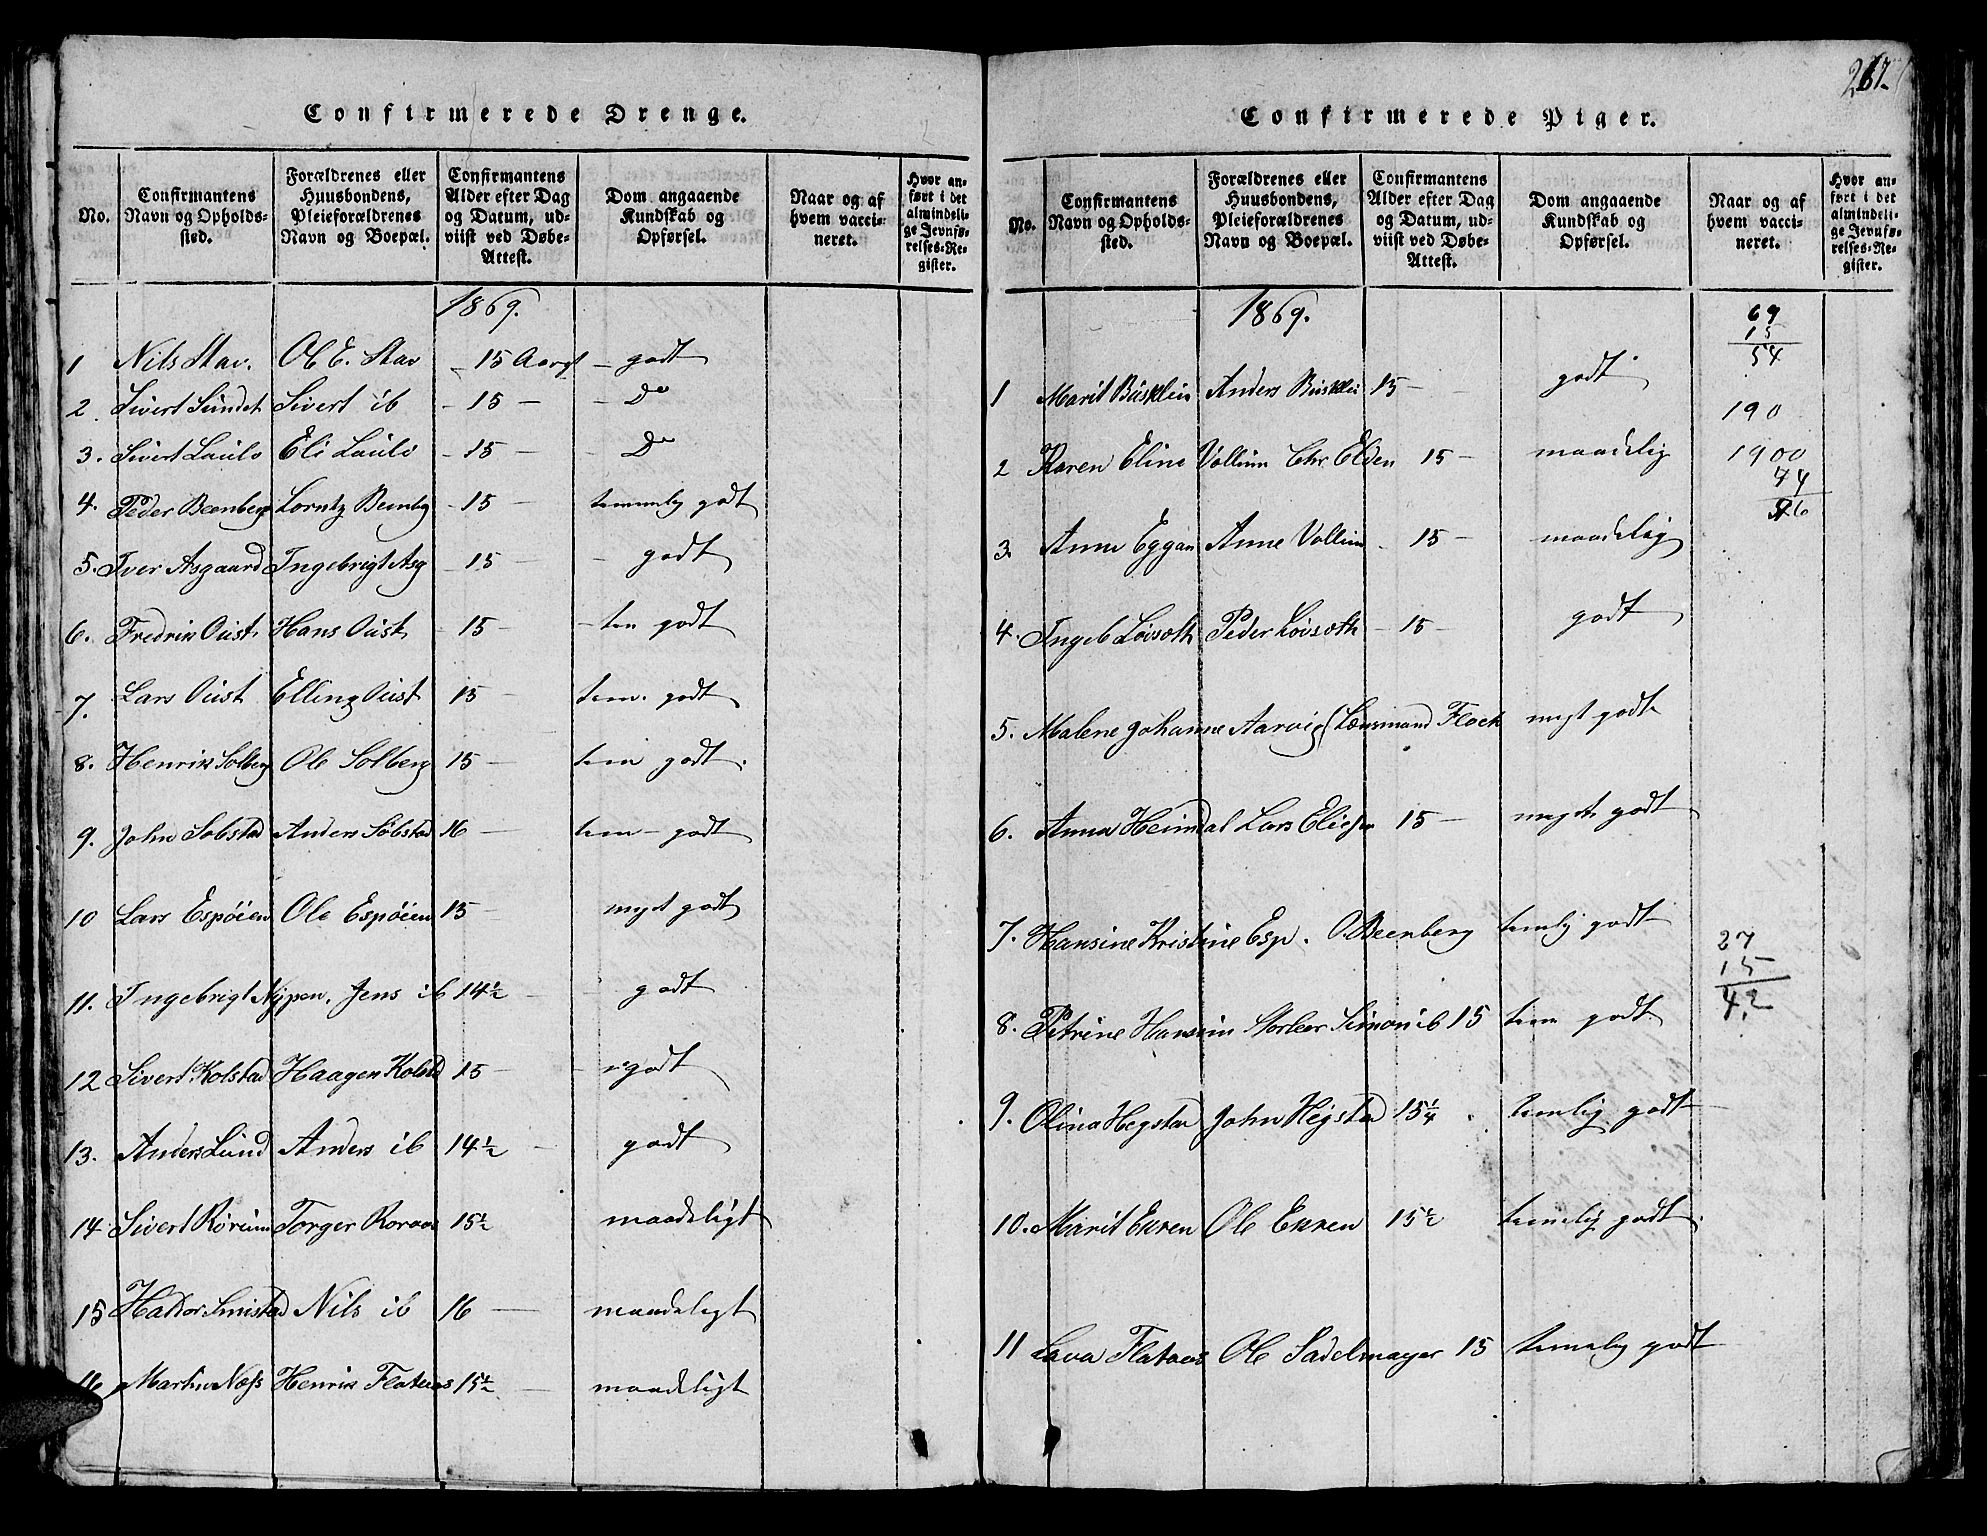 267.
Confirmerede Drenge.
No.
Confirmantens Navn og Opholds-sted.
Forældrenes eller Huusbondens, Pleieforældrenes Navn og Boepæl.
Confirmantens Alder efter Dag og Datum, ud-viist ved Døbe-Attest.
Dom angaaende Kundskab og Opførsel.
Naar og af hvem vacci-neret.
Hvor an-ført i det almindeli-ge Jevnfø-relses-Re-gister.
1869.
1 Nils Stav. Ole E. Stav 15 godt
2. Sivert Sundet Sivert ib - 15 - - Do
3. Sivert Laulo Eli Laulo - 15 - - Do
4. Peder Beenberg Lorntz 15 - temmelig godt
5. Iver Asgaard Ingebrigt Asg - 15 - - godt
6. Fredrik Oust Hans Oust - 15 - - tem godt
7. Lars Oust Elling Oust 15 - tem. godt
8. Henrik Solberg Ole Solberg 15 - tem godt.
9. John Solstad Anders Solstad 16 - tem - godt
10 Lars Espøien Ole Espøien 15 - meget godt
11. Ingebrigt Nypen. Jens ib 14½ - godt
12 Sivert Kolstad Haagen Kolstd 15 - godt
13. Anders Lund Anders ib 14½ - godt
14 Sivert Rørum Torger 15½ maadeligt
15 Haldor Nils ib 16 - maadeligt
16 Martin Næss Henrik Flataas 15½ - maadeligt
Confirmerede Piger.
No.
Confirmantens Navn og Opholds-sted.
Forældrenes eller Huusbondens, Pleieforældrenes Navn og Boepæl.
Confirmantens Alder efter Dag og Datum, ud-viist ved Døbe-Attest.
Dom angaaende Kundskab og Opførsel.
Naar og af hvem vacci-neret.
Hvor an-ført i det almindeli-ge Jevnfø-relses-Re-gister.
1869.
69
15
54
1 Marit Busklein Anders Busklei 15 - godt
190
2 Karen Eline Vollum Chr. Elden 15 - maadelig
1900
74
26
3. Anne Eggan Anne Vollum 15 - maadelig
4. Ingeb Løvsoth Peder Løvsoth - 15 - godt
5. Malene Johanne Aarvig Lænsmand Floek megt godt
6. Anna Heimdal Lars 15 - meget godt
7. Hansine Kristine Esp. O. Beenberg temlig godt
27
15
42
8. Petrine Simon ib 15 tem godt
9. Olina Hegstad John Hegstad 15¼ temlig godt
10. Marit Ekren Ole Ekren 15½ temelig godt.
11 Lava Flataas Ole Sadelmager 15 temelig godt